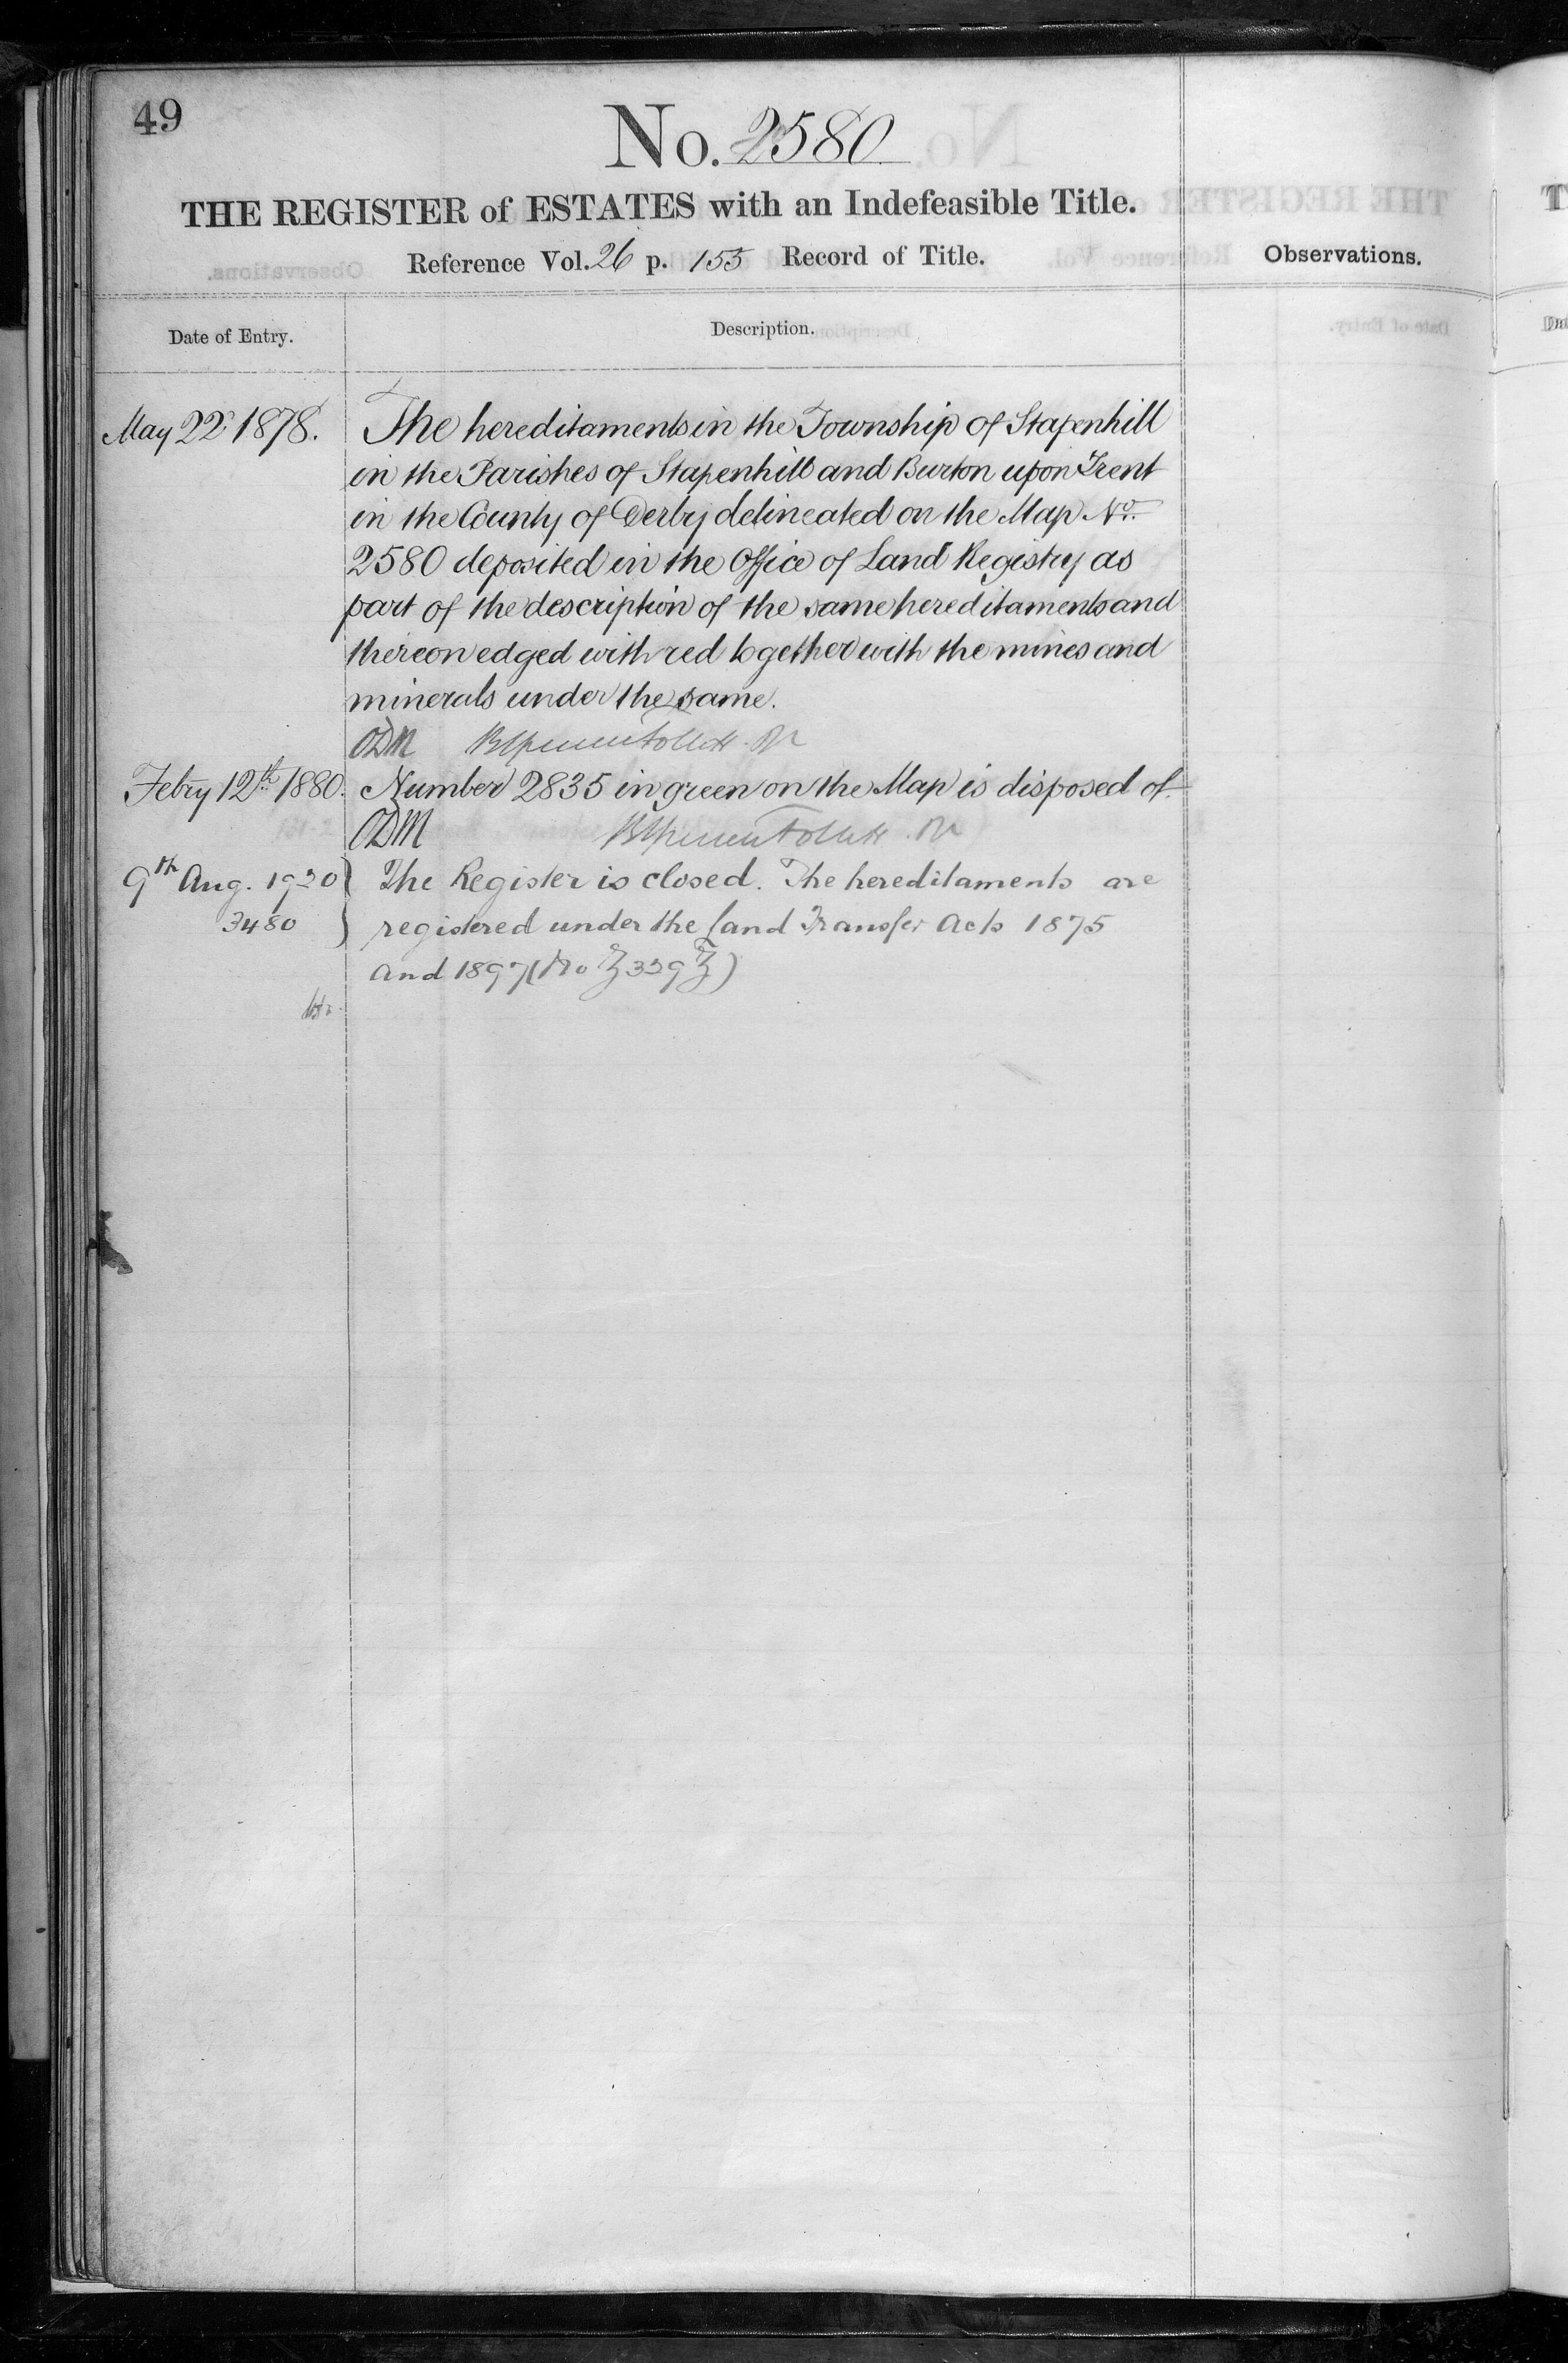 49
No. 2580
THE REGISTER of ESTATES with an Indefeasible Title.
Reference Vol. 26 p. 155 Record of Title.
Observations.
Date of Entry.
Description.
May 22 1878.
The hereditaments in the Township of Stapenhill
in the Parishes of Stapenhill and Burton upon Trent
in the County of Derby delineated on the Map No.
2580 deposited in the Office of Land Registry as
part of the description of the same hereditaments and
thereon edged with red together with the mines and
minerals under the same.
ODM
Febry 12th 1880.
Number 2835 in green on the Map is disposed of.
ODM
9th Aug. 1920
3480
The Register is closed. The hereditaments are
registered under the Land Transfer Acts 1875
and 1897 (No